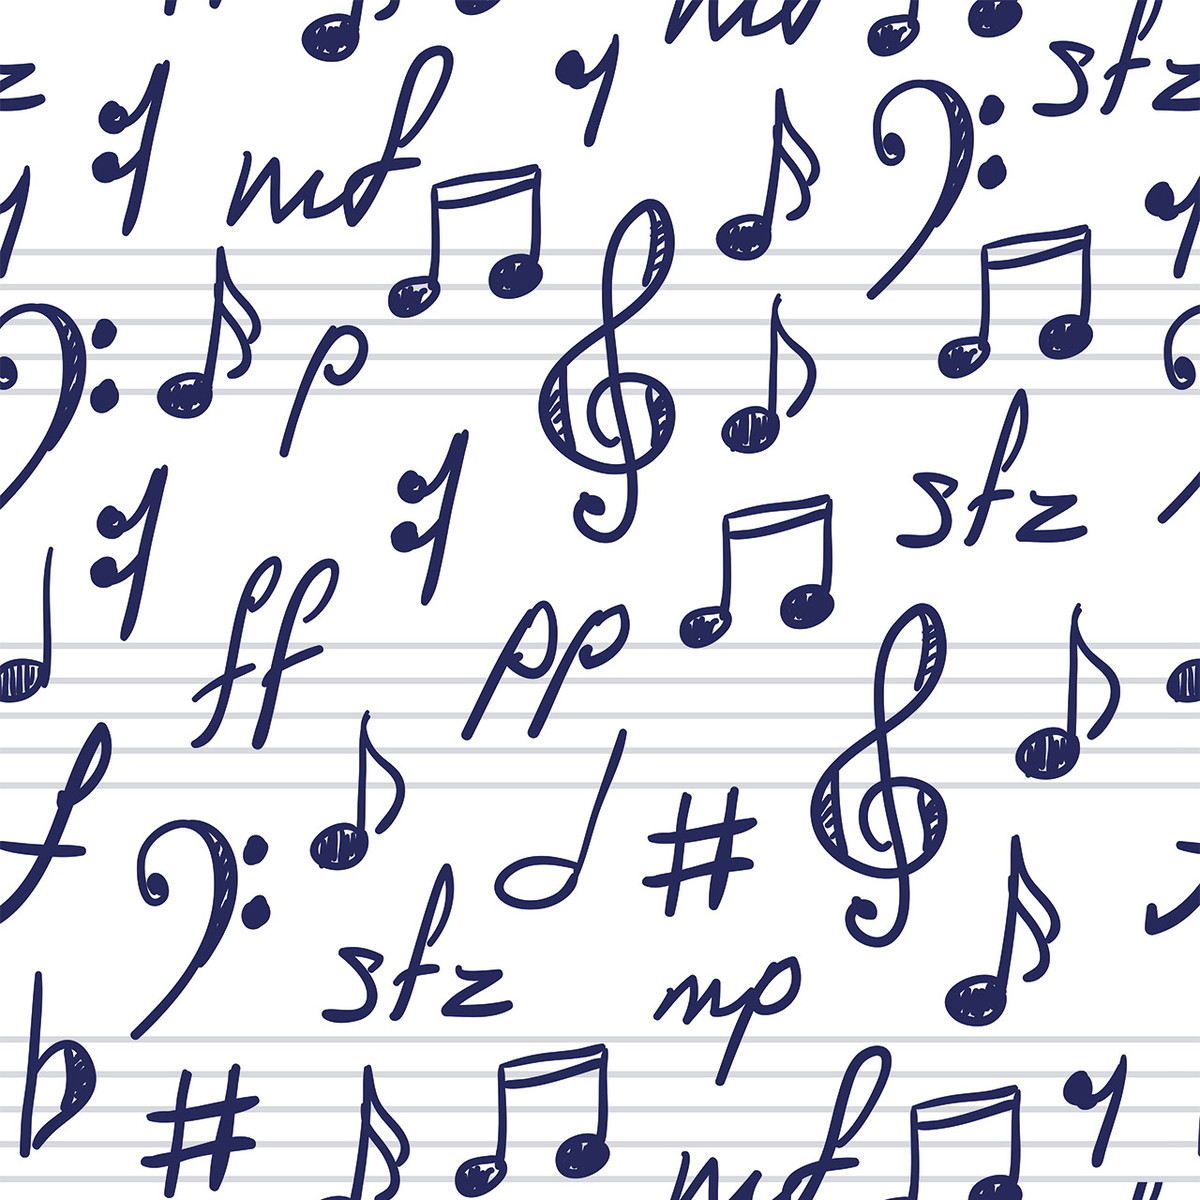 mf
sfz
mf
p
sfz
ff
pp
f
sfz
mp
mf